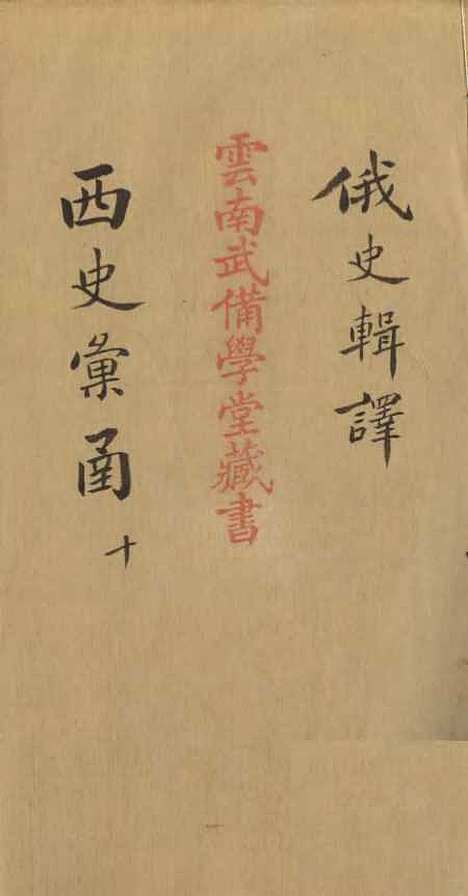 俄史輯譯
雲南武備學堂藏書
西史彙圅
十